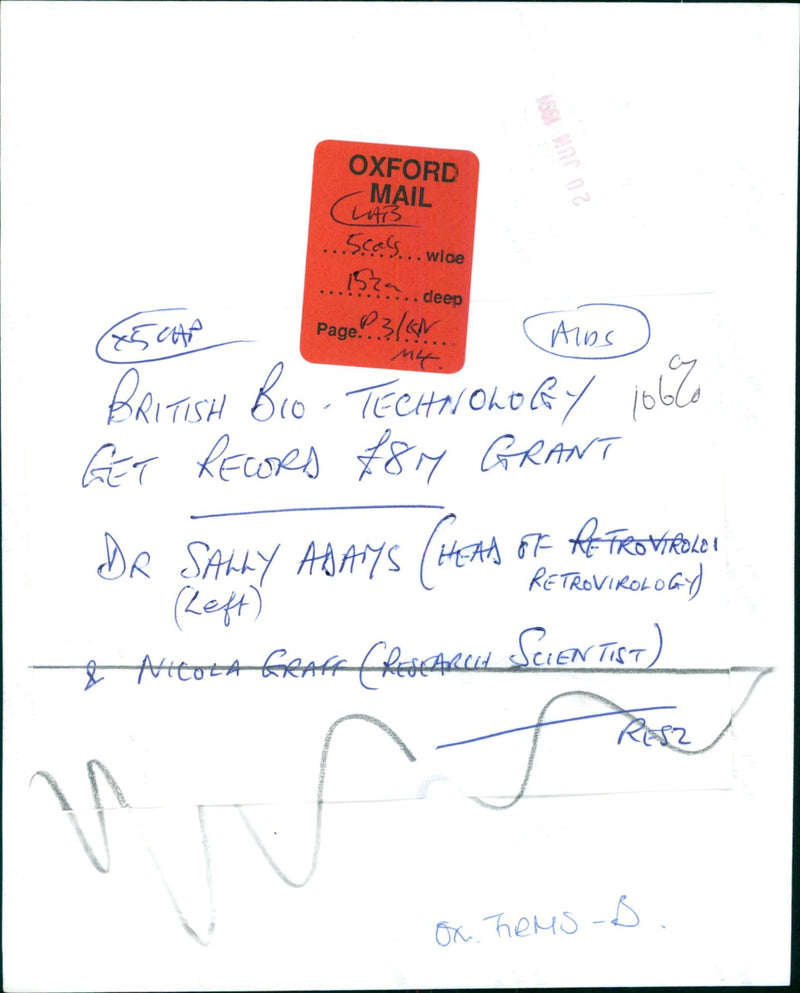 20 JUN 1991
OXFORD
MAIL
5cols wide
152m deep
Page P3/
x5 CAP
AIDS
106%
BRITISH BIO-TECHNOLOGY
GET RECORD £8M GRANT
DR SALLY ADAMS (HEAD OF RETROVIROLO
(Left) RETROVIROLOGY)
& NICOLA GRAFF (RESEARCH SCIENTIST)
RES2
OX. FIRMS - B.